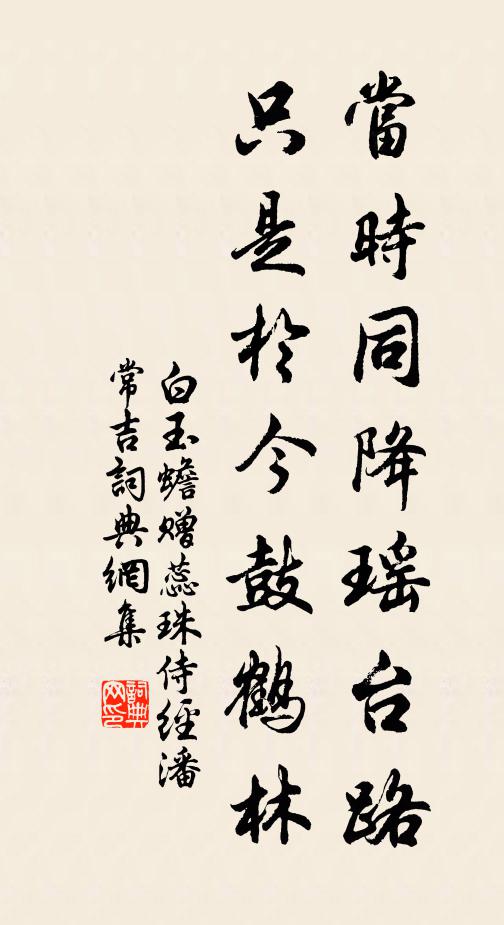 當時同降瑶台路
只是於今鼓鶴林
白玉蟾赠蕊珠侍經潘
常吉詞典網集
詞典網印